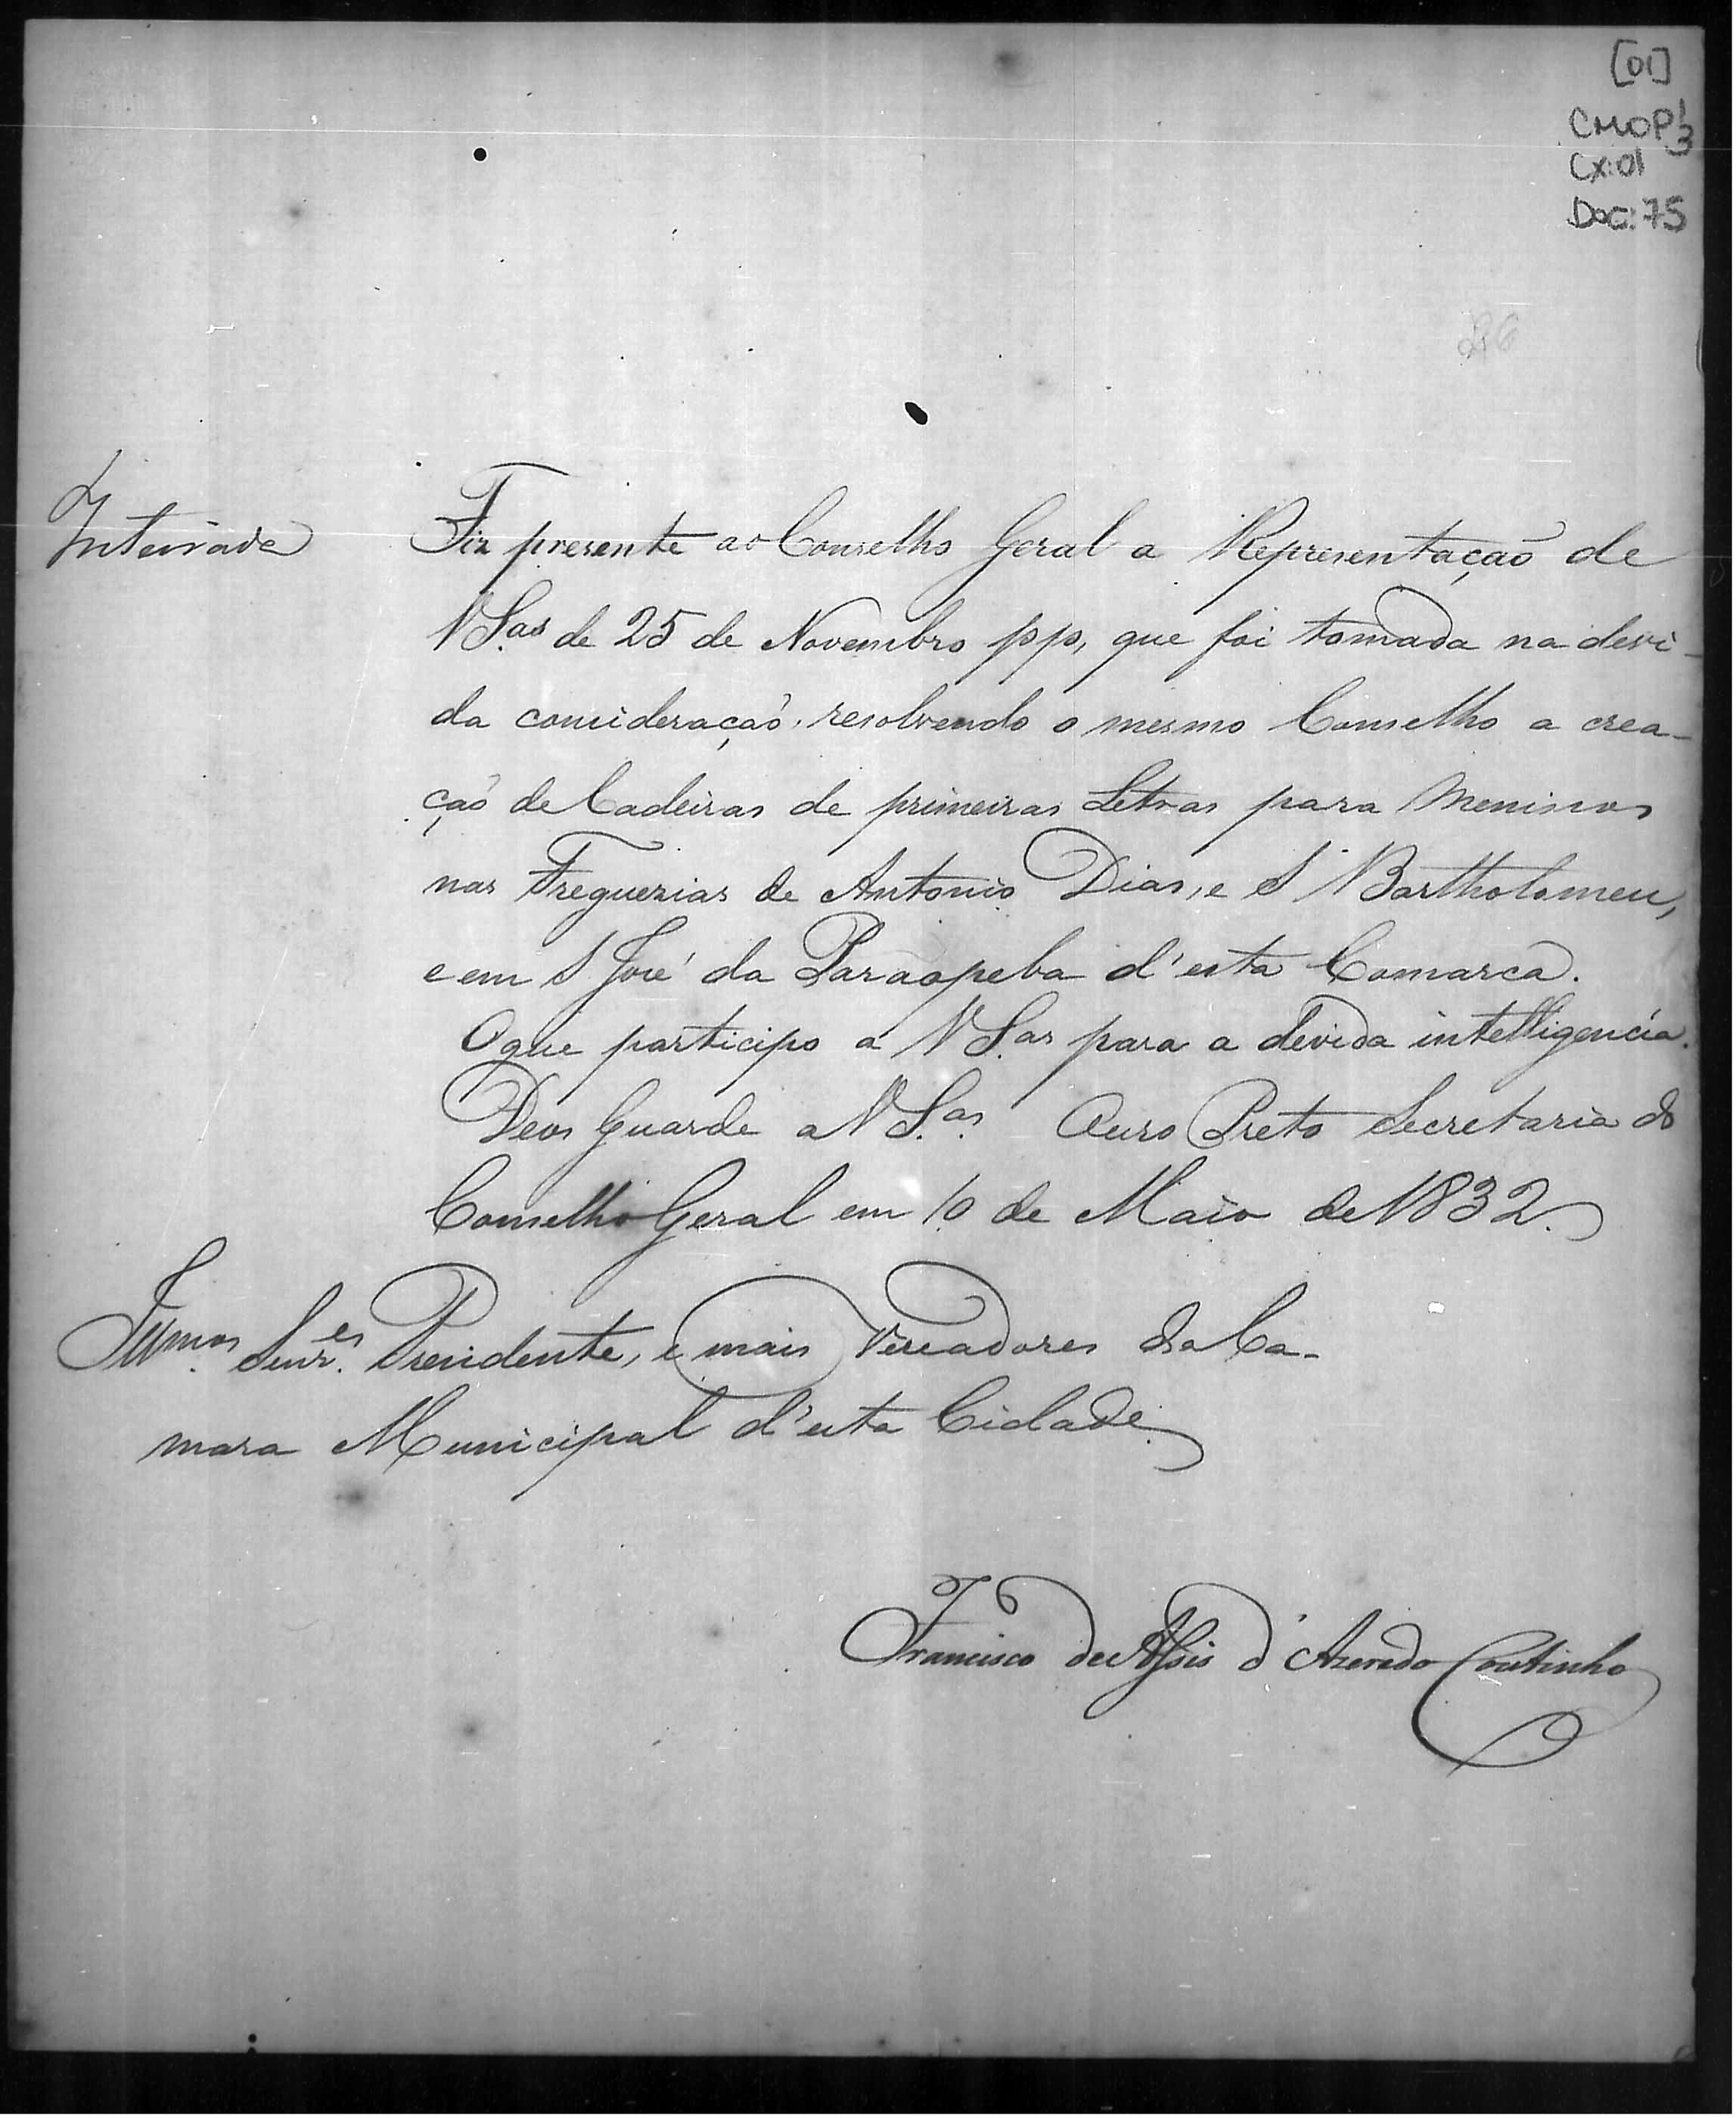 [01]
CMOP 1/3
Cx: 01
Doc: 75
Inteirada
Fiz presente ao Conselho Geral a Representação de
VS.as de 25 de Novembro pp, que foi tomada na devi-
da consideração, resolvendo o mesmo Conselho a crea-
ção de Cadeiras de primeiras Letras para Meninos
nas Freguezias de Antonio Dias, e S Bartholomeu,
e em S José da Paraopeba d'esta Comarca.
O que participo a VS.as para a devida intelligencia.
Deos Guarde a VS.as Ouro Preto Secretaria do
Conselho Geral em 10 de Maio de 1832.
Illmos Senr.es Presidente, e mais Vereadores da Ca-
mara Municipal d'esta Cidade.
Francisco de Assis d'Azeredo Coutinho